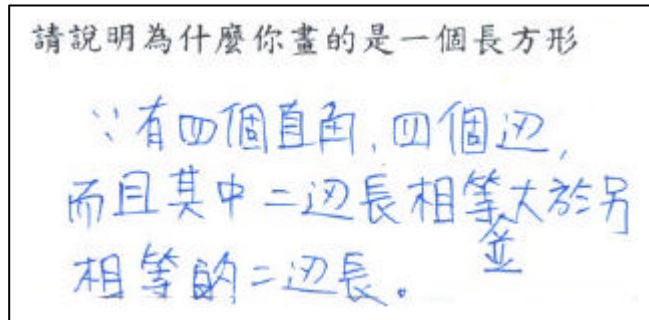 請說明為什麼你畫的是一個長方形
∵有四個直角,四個边,
而且其中二边長相等並大於另
相等的二边長。